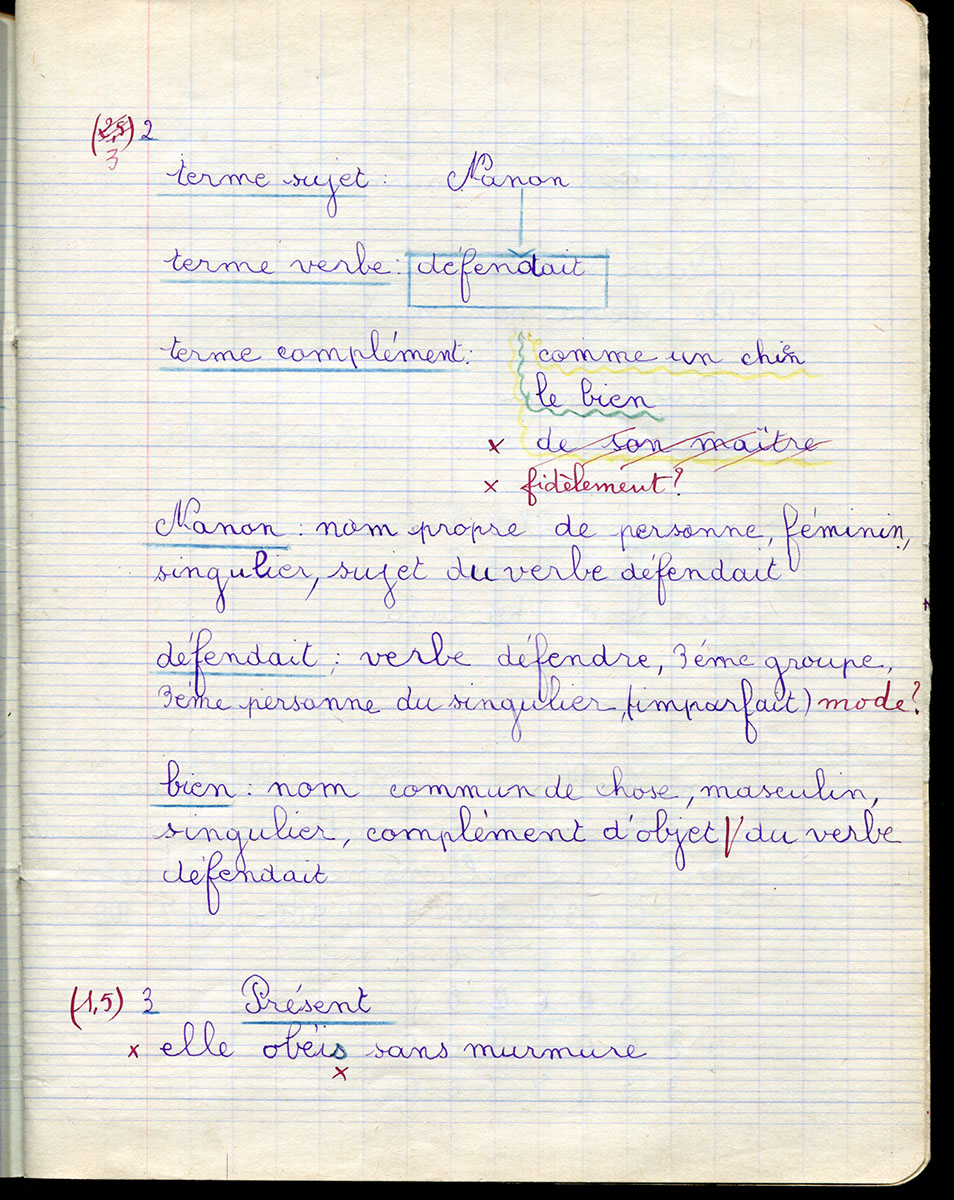 (2,5) 2
3
terme sujet : Nanon
terme verbe : défendait
terme complément : comme un chien
le bien
x de son maître
x fidèlement ?
Nanon : nom propre de personne, féminin,
singulier, sujet du verbe défendait
défendait : verbe défendre, 3éme groupe,
3éme personne du singulier, (imparfait) mode ?
bien : nom commun de chose, masculin,
singulier, complément d'objet / du verbe
défendait
(1,5) 3 Présent
x elle obéis sans murmure
x